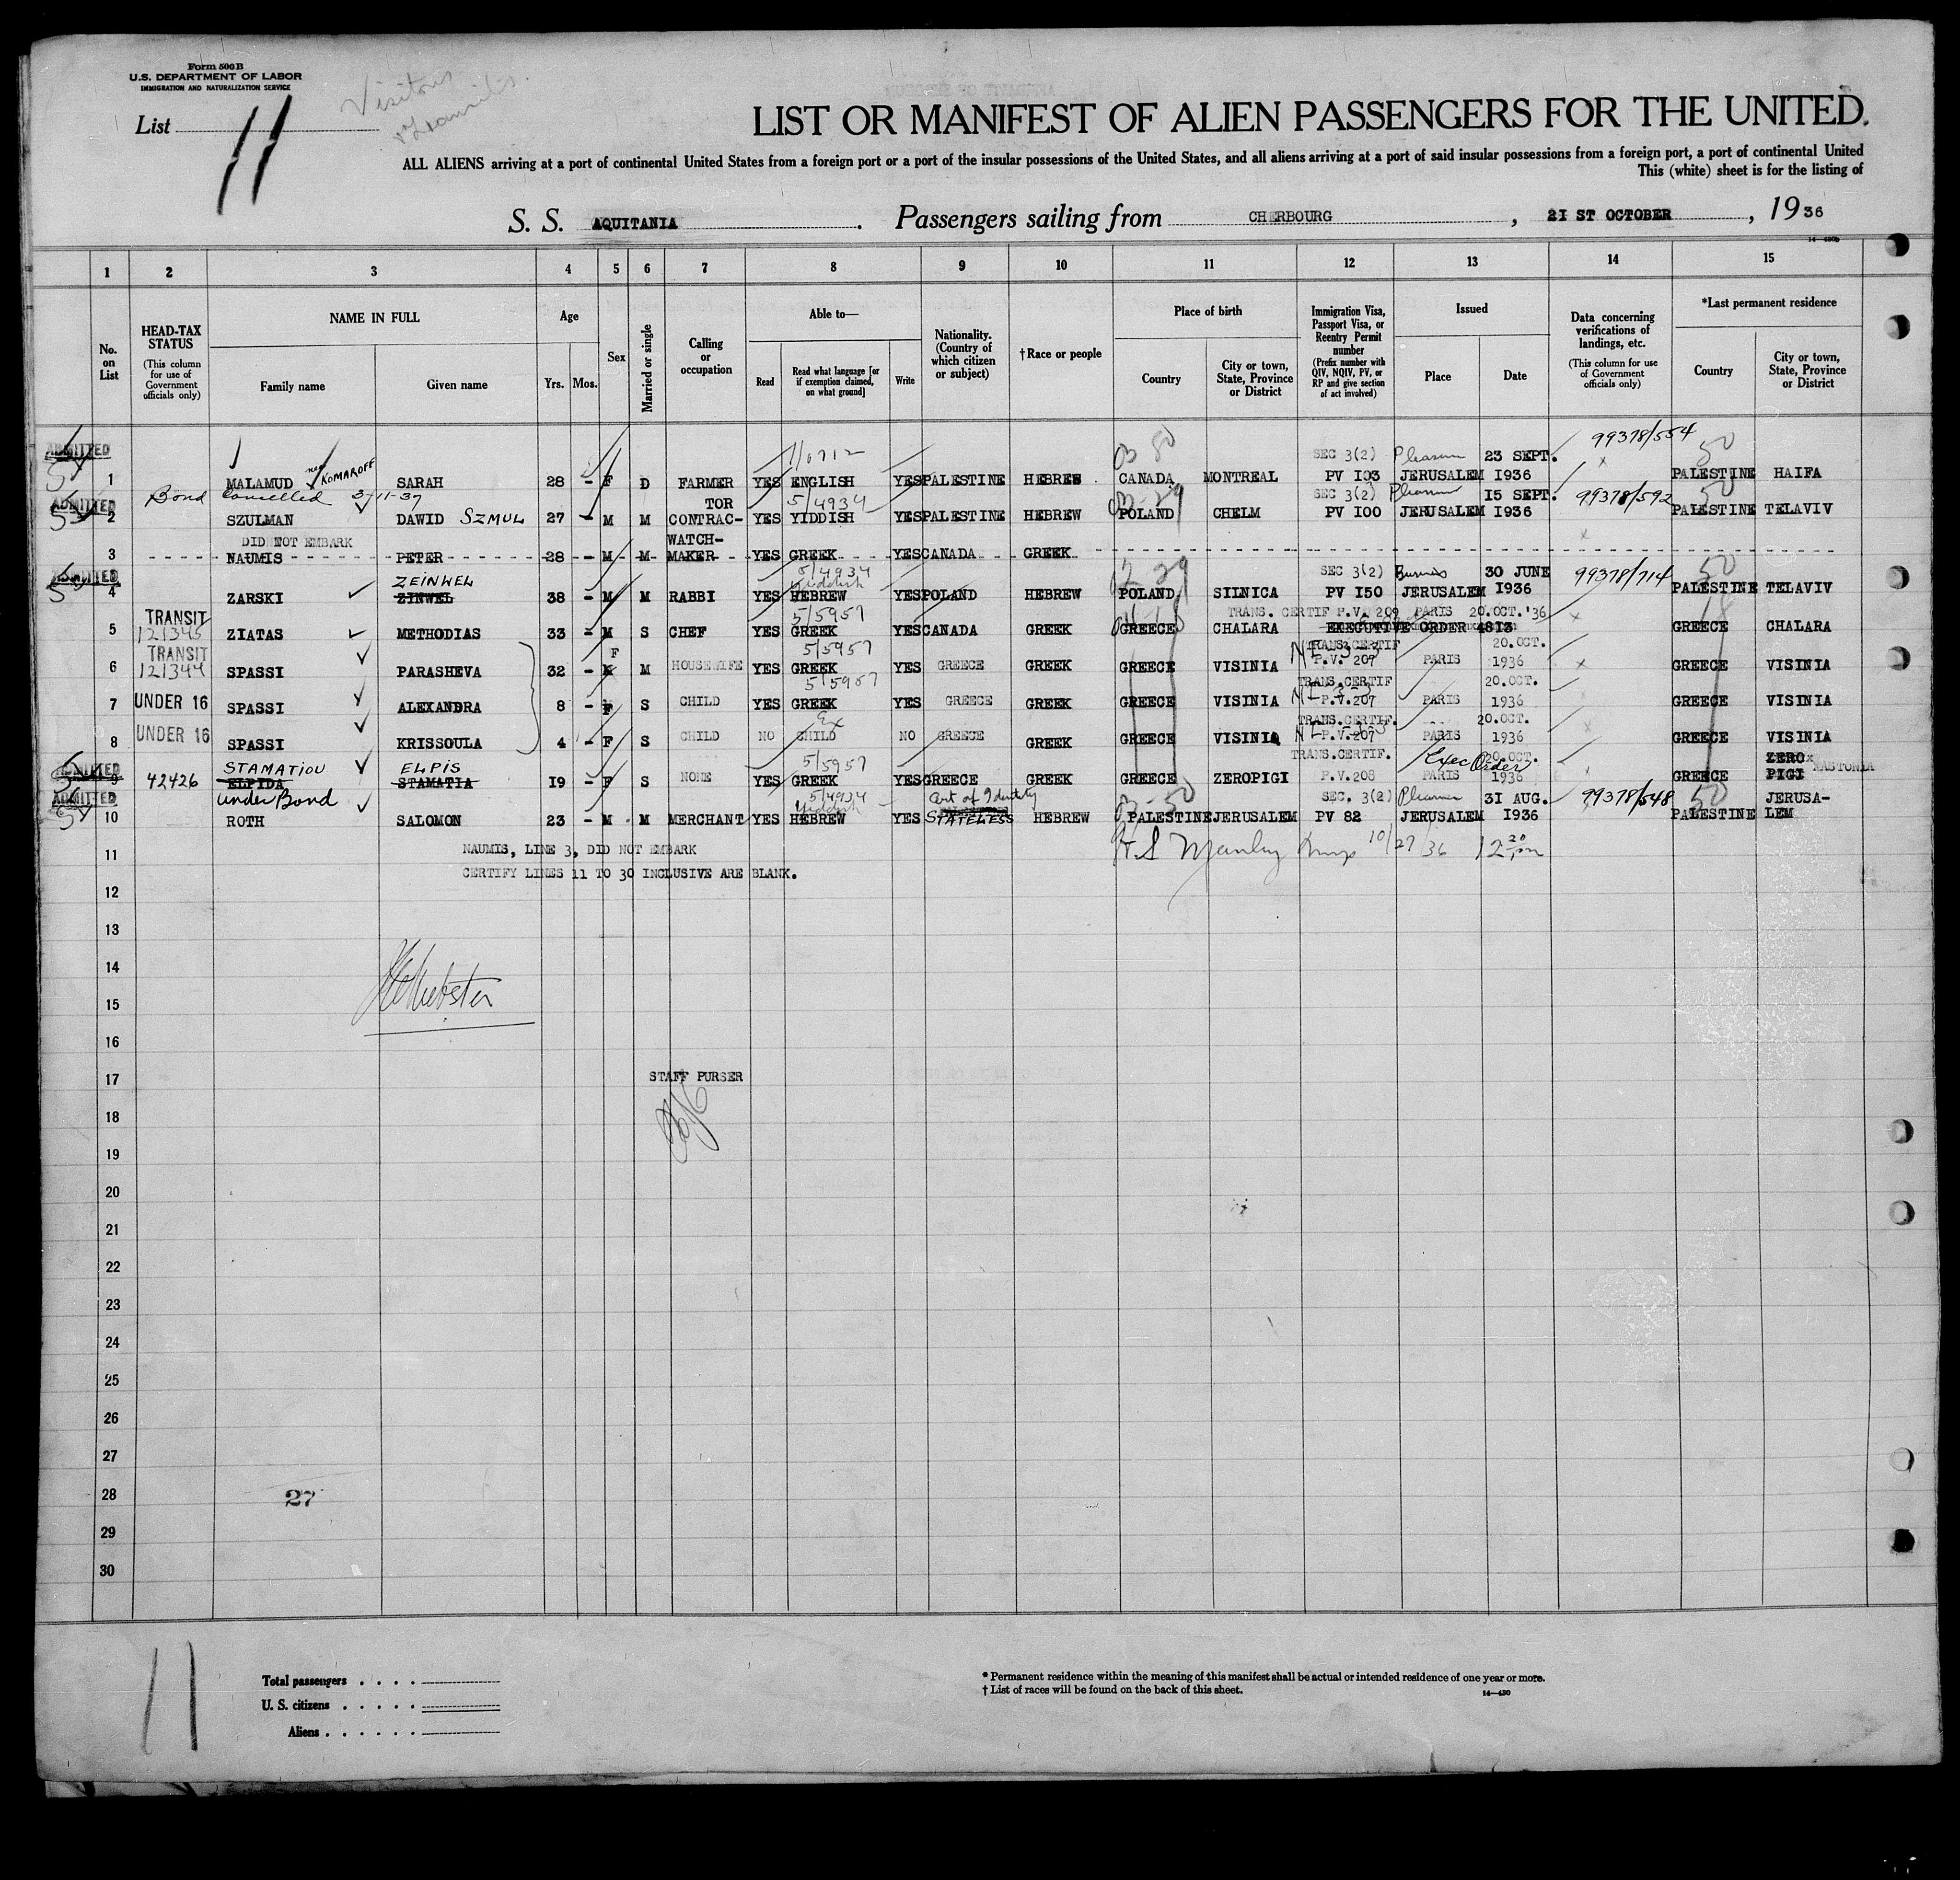 Form 500B
U.S. DEPARTMENT OF LABOR
IMMIGRATION AND NATURALIZATION SERVICE
Visitors
List 11
LIST OR MANIFEST OF ALIEN PASSENGERS FOR THE UNITED
ALL ALIENS arriving at a port of continental United States from a foreign port or a port of the insular possessions of the United States, and all aliens arriving at a port of said insular possessions from a foreign port, a port of continental United
This (white) sheet is for the listing of
S. S. AQUITANIA. Passengers sailing from CHERBOURG, 2I ST OCTOBER, 1936
14—480b
1 2 3 4 5 6 7 8 9 10 11 12 13 14 15
No. on List
HEAD-TAX STATUS
(This column for use of Government officials only)
NAME IN FULL
Family name
Given name
Age
Yrs. Mos.
Sex
Married or single
Calling or occupation
Able to—
Read
Read what language [or if exemption claimed, on what ground]
Write
Nationality. (Country of which citizen or subject)
†Race or people
Place of birth
Country
City or town, State, Province or District
Immigration Visa, Passport Visa, or Reentry Permit number
(Prefix number with QIV, NQIV, PV, or RP and give section of act involved)
Issued
Place
Date
Data concerning verifications of landings, etc.
(This column for use of Government officials only)
*Last permanent residence
Country
City or town, State, Province or District
ADMITTED SEC 3(2) Pleasure 23 SEPT. 99378/554 50
1 MALAMUD nee KOMAROFF SARAH 28 - F D FARMER YES ENGLISH YES PALESTINE HEBREW CANADA MONTREAL PV I03 JERUSALEM I936 PALESTINE HAIFA
ADMITTED Bond Cancelled 3-11-37 TOR 5/4934 SEC 3(2) Pleasure I5 SEPT. 99378/592 50
2 SZULMAN DAWID SZMUL 27 - M M CONTRAC- YES YIDDISH YES PALESTINE HEBREW POLAND CHELM PV I00 JERUSALEM I936 PALESTINE TELAVIV
DID NOT EMBARK WATCH-
3 NAUMIS PETER 28 - M M MAKER YES GREEK YES CANADA GREEK
ADMITTED ZEINWEL 5/4934 Yiddish SEC 3(2) Business 30 JUNE 99378/714 50
4 ZARSKI ZINWEL 38 - M M RABBI YES HEBREW YES POLAND HEBREW POLAND SILNICA PV I50 JERUSALEM I936 PALESTINE TELAVIV
TRANSIT 121345 5/5957 TRANS. CERTIF P.V. 209 PARIS 20.OCT.'36
5 ZIATAS METHODIAS 33 - M S CHEF YES GREEK YES CANADA GREEK GREECE CHALARA EXECUTIVE ORDER 48I3 GREECE CHALARA
TRANSIT 121344 F 5/5957 TRANS.CERTIF 20.OCT.
6 SPASSI PARASHEVA 32 - M HOUSEWIFE YES GREEK YES GREECE GREEK GREECE VISINIA P.V. 207 PARIS 1936 GREECE VISINIA
5/5957 TRANS.CERTIF 20.OCT.
7 UNDER 16 SPASSI ALEXANDRA 8 - F S CHILD YES GREEK YES GREECE GREEK GREECE VISINIA P.V.207 PARIS 1936 GREECE VISINIA
Ex TRANS.CERTIF. 20.OCT.
8 UNDER 16 SPASSI KRISSOULA 4 - F S CHILD NO CHILD NO GREECE GREEK GREECE VISINIA P.V.207 PARIS 1936 GREECE VISINIA
ADMITTED STAMATIOU ELPIS 5/5957 TRANS.CERTIF. Exec Order 20.OCT. ZERO
9 42426 ELPIDA STAMATIA I9 - F S NONE YES GREEK YES GREECE GREEK GREECE ZEROPIGI P.V.208 PARIS 1936 GREECE PIGI KASTORIA
ADMITTED under Bond 5/4934 Yiddish Cert of Identity SEC. 3(2) Pleasure 3I AUG. 99378/548 50 JERUSA-
10 ROTH SALOMON 23 - M M MERCHANT YES HEBREW YES STATELESS HEBREW PALESTINE JERUSALEM PV 82 JERUSALEM I936 PALESTINE LEM
11 NAUMIS, LINE 3, DID NOT EMBARK 10/27/36 12 20 pm
CERTIFY LINES 11 TO 30 INCLUSIVE ARE BLANK.
12
13
14
15 Webster
16
17 STAFF PURSER
18
19
20
21
22
23
24
25
26
27
28 27
29
30
11
Total passengers
U. S. citizens
Aliens
* Permanent residence within the meaning of this manifest shall be actual or intended residence of one year or more.
† List of races will be found on the back of this sheet.
14—430